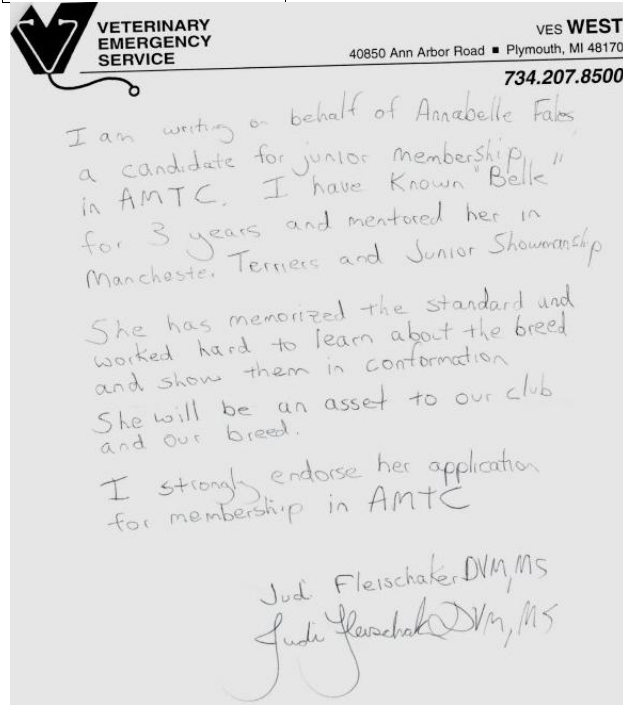 VETERINARY
EMERGENCY
SERVICE
VES WEST
40850 Ann Arbor Road ■ Plymouth, MI 48170
734.207.8500
I am writing on behalf of Annabelle Fales
a candidate for junior membership
in AMTC. I have Known "Belle"
for 3 years and mentored her in
Manchester Terriers and Junior Showmanship
She has memorized the standard and
worked hard to learn about the breed
and show them in conformation
She will be an asset to our club
and our breed.
I strongly endorse her application
for membership in AMTC
Judi Fleischaker DVM, MS
Judi Fleischaker DVM, MS